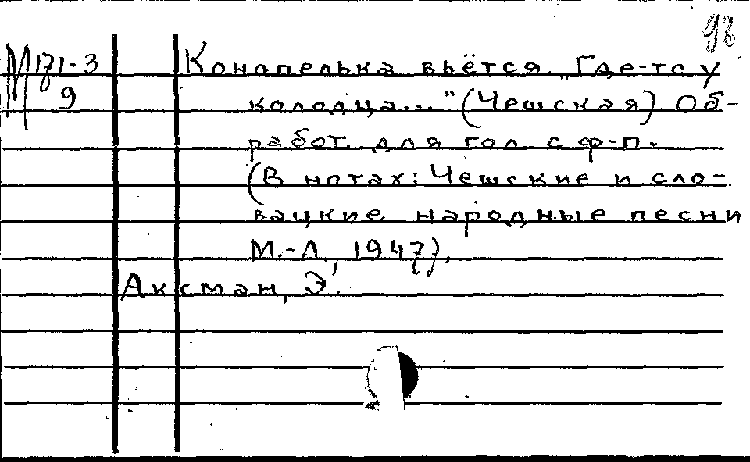 98
М 171-3
9
Конапелька вьётся „Где-то у
колодца..." (Чешская) Об-
работ. для гол. с ф-п.
(В нотах: Чешские и сло-
вацкие народные песни
М.-Л., 1947).
Аксман, Э.